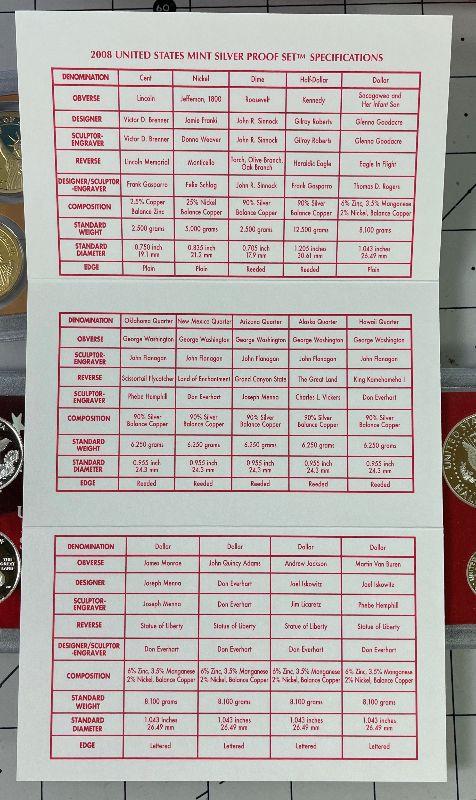 60
2008 UNITED STATES MINT SILVER PROOF SET™ SPECIFICATIONS
DENOMINATION Cent Nickel Dime Half-Dollar Dollar
OBVERSE Lincoln Jefferson, 1800 Roosevelt Kennedy Sacagawea and
Her Infant Son
DESIGNER Victor D. Brenner Jamie Franki John R. Sinnock Gilroy Roberts Glenna Goodacre
SCULPTOR-
ENGRAVER Victor D. Brenner Donna Weaver John R. Sinnock Gilroy Roberts Glenna Goodacre
REVERSE Lincoln Memorial Monticello Torch, Olive Branch,
Oak Branch Heraldic Eagle Eagle In Flight
DESIGNER/SCULPTOR
-ENGRAVER Frank Gasparro Felix Schlag John R. Sinnock Frank Gasparro Thomas D. Rogers
COMPOSITION 2.5% Copper 25% Nickel 90% Silver 90% Silver 6% Zinc, 3.5% Manganese
Balance Zinc Balance Copper Balance Copper Balance Copper 2% Nickel, Balance Copper
STANDARD
WEIGHT 2.500 grams 5.000 grams 2.500 grams 12.500 grams 8.100 grams
STANDARD 0.750 inch 0.835 inch 0.705 inch 1.205 inches 1.043 inch
DIAMETER 19.1 mm 21.2 mm 17.9 mm 30.61 mm 26.49 mm
EDGE Plain Plain Reeded Reeded Plain
DENOMINATION Oklahoma Quarter New Mexico Quarter Arizona Quarter Alaska Quarter Hawaii Quarter
OBVERSE George Washington George Washington George Washington George Washington George Washington
SCULPTOR-
ENGRAVER John Flanagan John Flanagan John Flanagan John Flanagan John Flanagan
REVERSE Scissortail Flycatcher Land of Enchantment Grand Canyon State The Great Land King Kamehameha I
SCULPTOR-
ENGRAVER Phebe Hemphill Don Everhart Joseph Menna Charles L. Vickers Don Everhart
COMPOSITION 90% Silver 90% Silver 90% Silver 90% Silver 90% Silver
Balance Copper Balance Copper Balance Copper Balance Copper Balance Copper
STANDARD
WEIGHT 6.250 grams 6.250 grams 6.250 grams 6.250 grams 6.250 grams
STANDARD 0.955 inch 0.955 inch 0.955 inch 0.955 inch 0.955 inch
DIAMETER 24.3 mm 24.3 mm 24.3 mm 24.3 mm 24.3 mm
EDGE Reeded Reeded Reeded Reeded Reeded
THE
GREAT
LAND
DENOMINATION Dollar Dollar Dollar Dollar
OBVERSE James Monroe John Quincy Adams Andrew Jackson Martin Van Buren
DESIGNER Joseph Menna Don Everhart Joel Iskowitz Joel Iskowitz
SCULPTOR-
ENGRAVER Joseph Menna Don Everhart Jim Licaretz Phebe Hemphill
REVERSE Statue of Liberty Statue of Liberty Statue of Liberty Statue of Liberty
DESIGNER/SCULPTOR
-ENGRAVER Don Everhart Don Everhart Don Everhart Don Everhart
COMPOSITION 6% Zinc, 3.5% Manganese 6% Zinc, 3.5% Manganese 6% Zinc, 3.5% Manganese 6% Zinc, 3.5% Manganese
2% Nickel, Balance Copper 2% Nickel, Balance Copper 2% Nickel, Balance Copper 2% Nickel, Balance Copper
STANDARD
WEIGHT 8.100 grams 8.100 grams 8.100 grams 8.100 grams
STANDARD 1.043 inches 1.043 inches 1.043 inches 1.043 inches
DIAMETER 26.49 mm 26.49 mm 26.49 mm 26.49 mm
EDGE Lettered Lettered Lettered Lettered